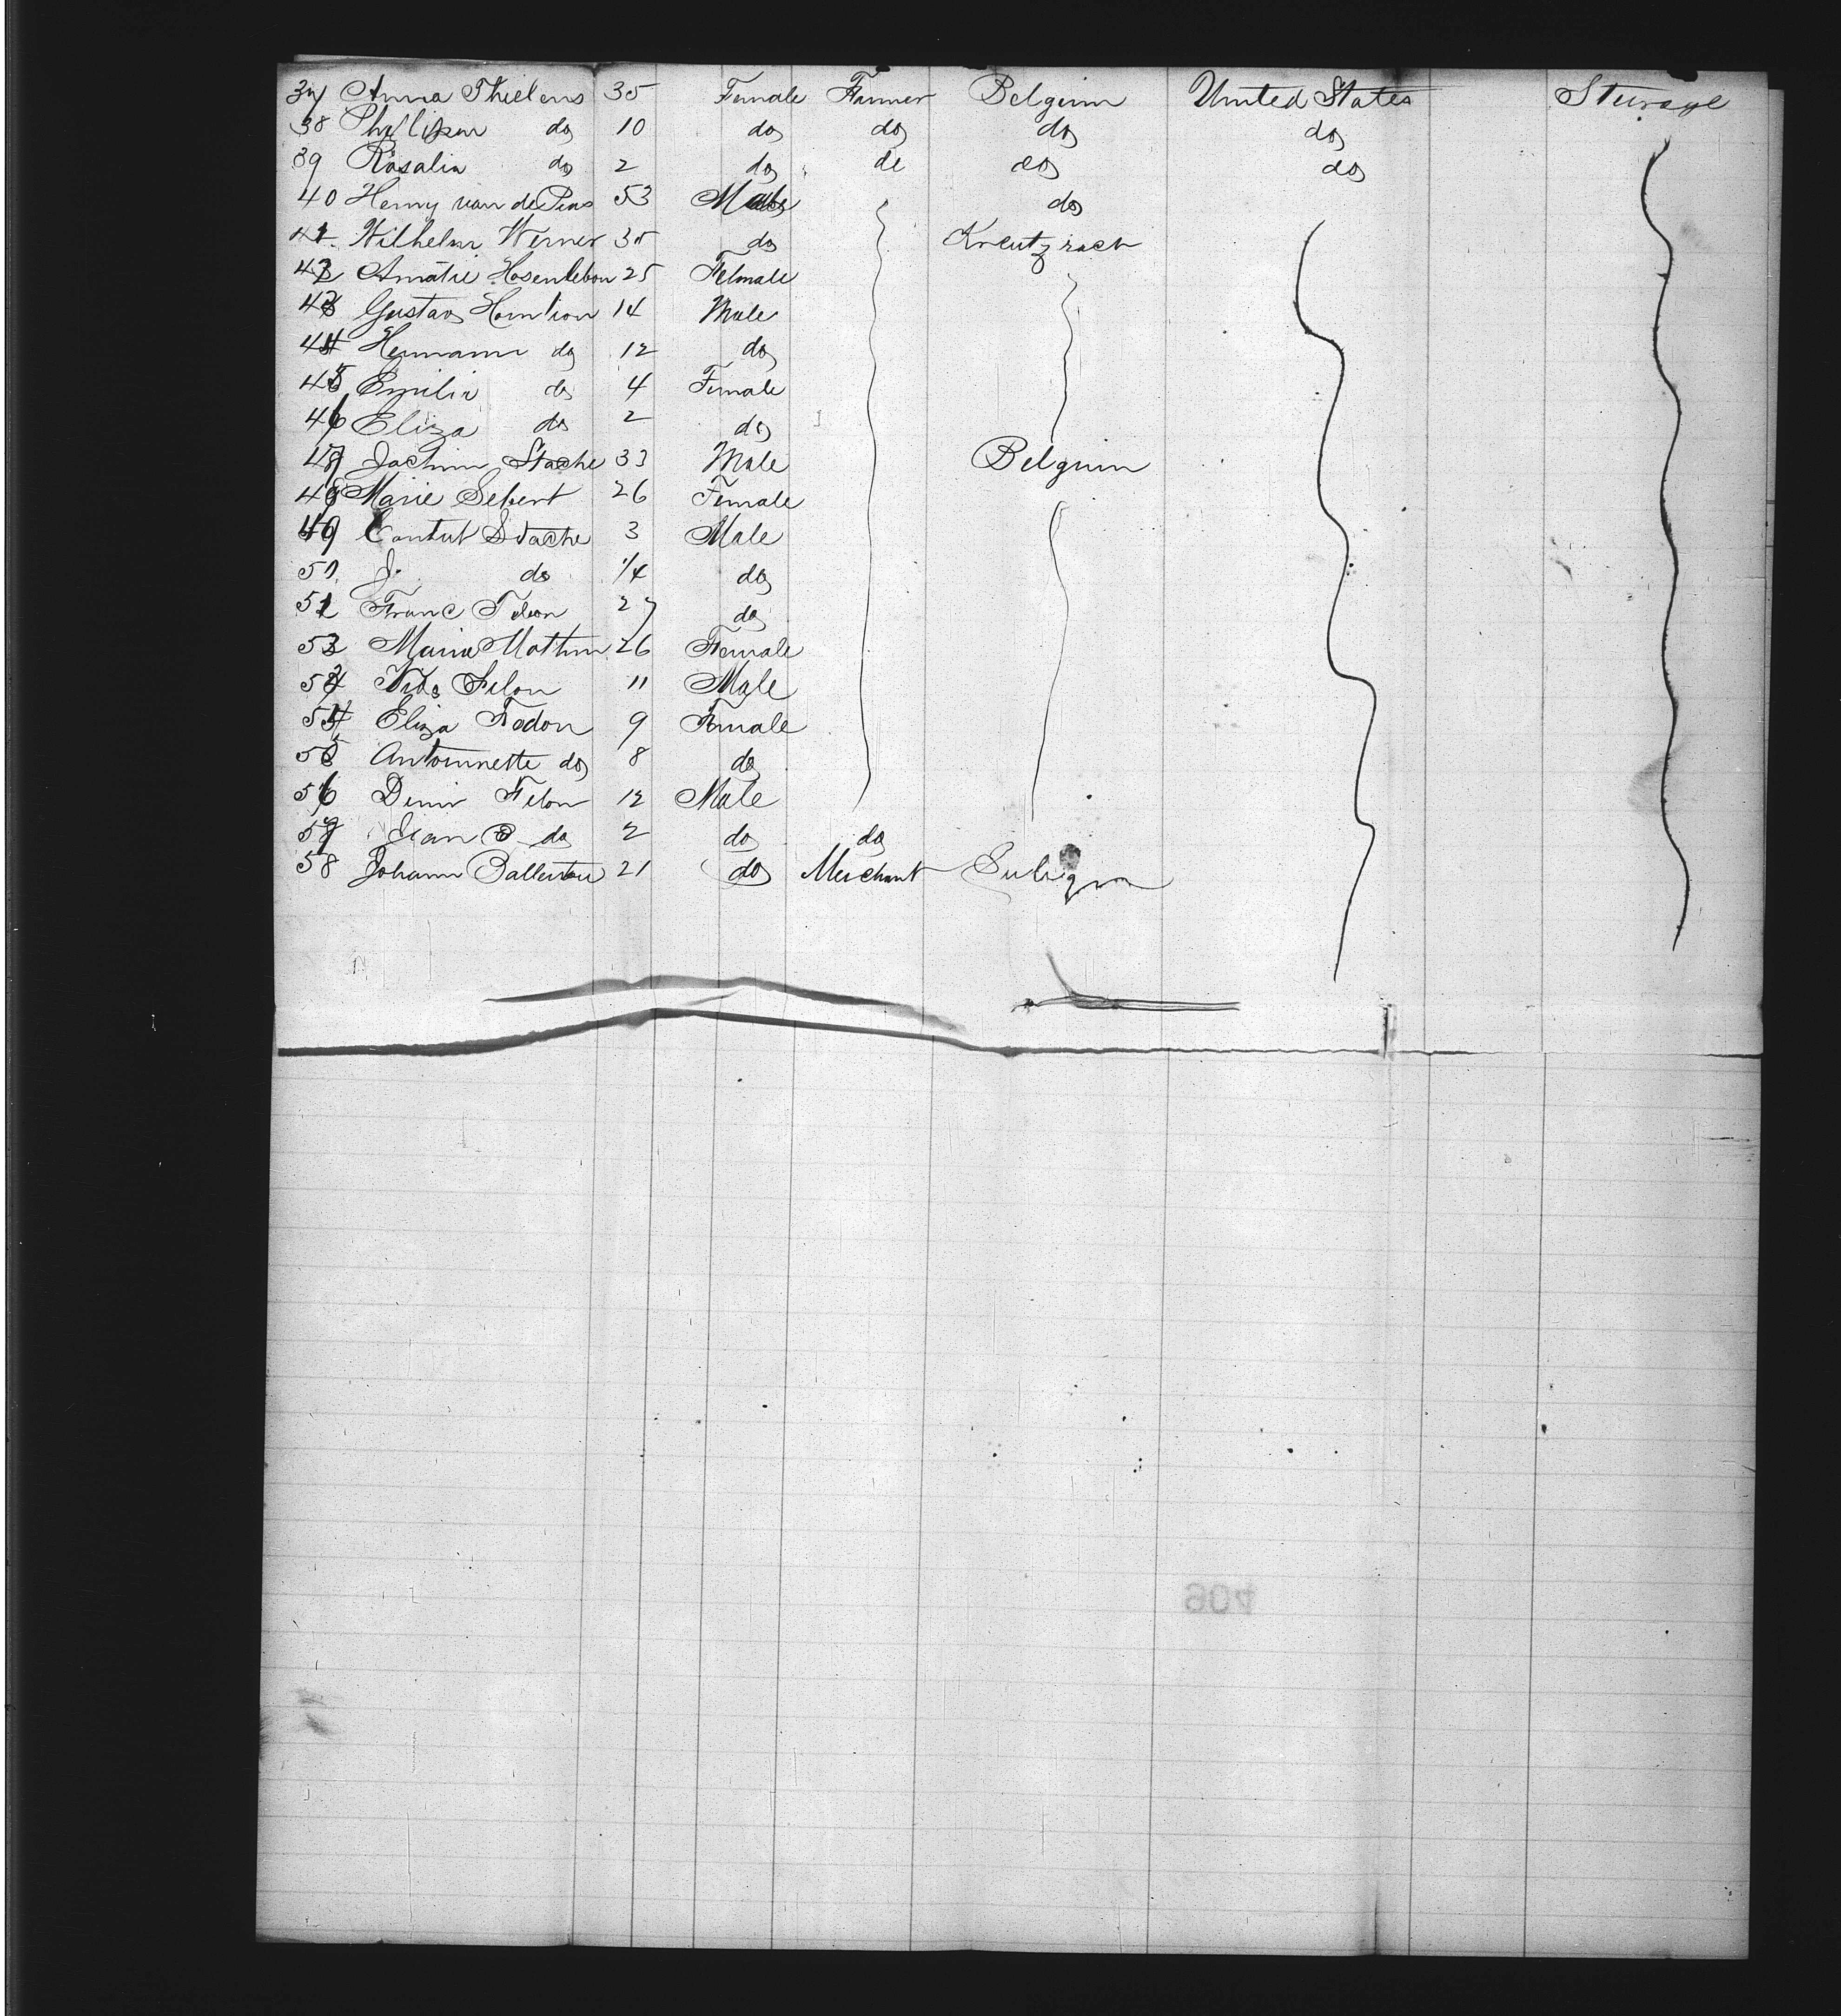 37 Anna Thielens 35 Female Farmer Belgium United States Sturage
38 do 10 do do do do
39 Rosalia do 2 do de do do
40 Henry van de 53 Male do
41 Wilhelm Werner 35 do Kreutznach
42 Amatie Hosenlebon 25 Felmale
43 Gustav 14 Male
44 Hermann do 12 do
45 Emilie do 4 Female
46 Eliza do 2 do
47 Jachim Stache 33 Male Belgium
48 Marie Sebert 26 Female
49 Stache 3 Male
50 J. do 1/4 do
51 Franc 27 do
52 Maria 26 Female
53 Felon 11 Male
54 Eliza Fedon 9 Female
55 Antoinnette do 8 do
56 Felon 12 Male
57 Jean do 2 do do
58 Johann 21 do Merchant
904